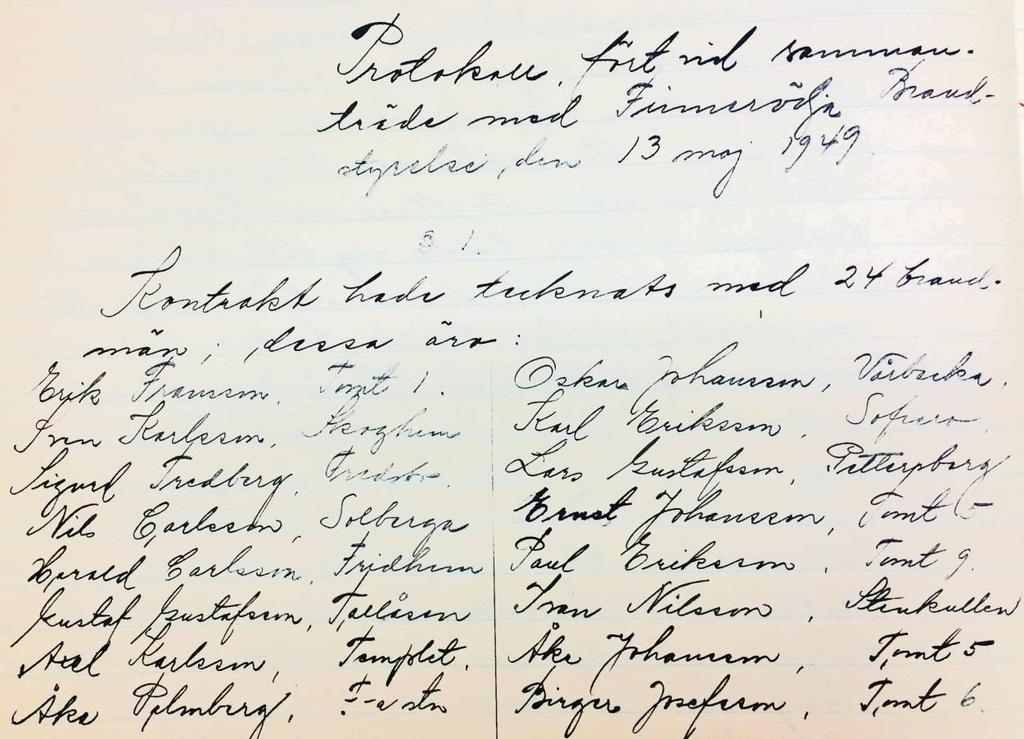 Protokoll, fört vid samman-
träde med Finnerödja Brand-
styrelse, den 13 maj 1949.
§ 1.
Kontrakt hade tecknats med 24 brand-
män; dessa äro:
Erik Fransson, Tomt 1.
Sven Karlsson, Skoghem
Sigurd Fredberg,
Nils Carlsson, Solberga
Harald Carlsson, Fridhem
Gustaf Gustafsson, Tallåsen
Axel Karlsson, Templet.
Åke Palmberg, F-a stn
Oskar Johansson, Vårbacka.
Karl Eriksson, Sofiero.
Lars Gustafsson, Pettersberg
Ernst Johansson, Tomt 5
Paul Eriksson, Tomt 9.
Ivan Nilsson, Stenkullen
Åke Johansson, Tomt 5
Birger Josefsson, Tomt 6.